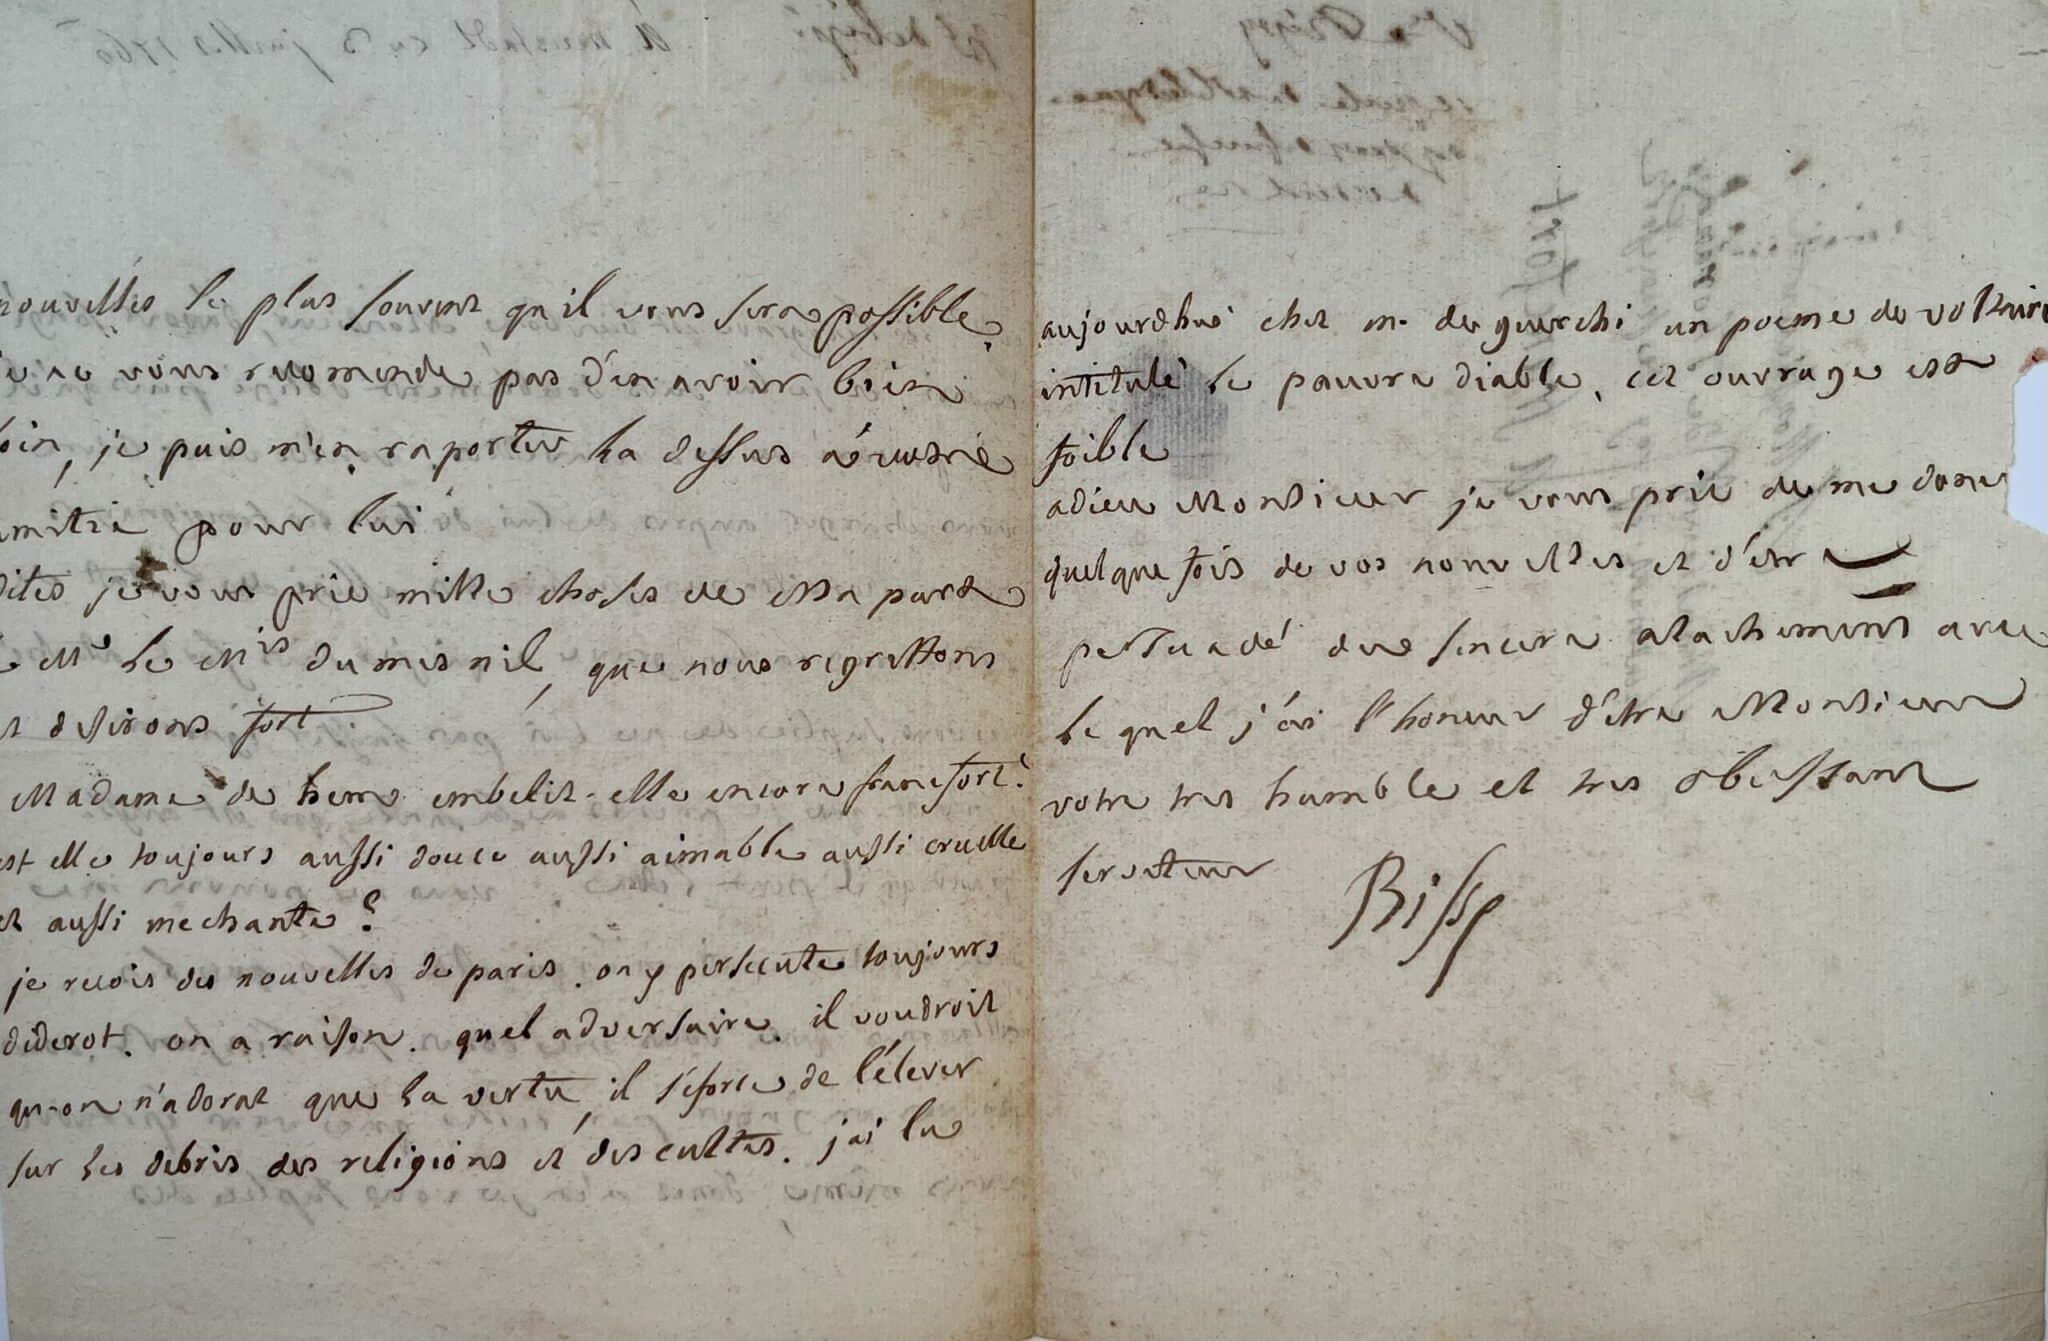 nouvelles le plus souvent qu'il vous sera possible,
je ne vous recomende pas d'en avoir bien
soin, je puis m'en raporter la dessus a vostre
amitie pour lui
dites je vous prie mille choses de Ma part
a Mr le Mis dumesnil, que nous regrettons
et desirons fort
Madame de hem embelit-elle encore francfort?
est elle toujours aussi douce aussi aimable aussi cruelle
et aussi mechante?
je recois des nouvelles de paris. on y persecute toujours
diderot. on a raison. quel adversaire. il voudroit
qu-on n'adorat que la vertu, il s'eforce de l'élever
sur les debris des religions et des cultes. j'ai lu
aujourdhui chez m. de guerchi un poeme de voltaire
intitulé le pauvre diable, cet ouvrage est
foible
adieu Monsieur je vous prie de me doner
quelque fois de vos nouvelles et d'etre
persuadé du sincere atachement avec
le quel j'ai l'honeur d'etre Monsieur
votre tres humble et tres obeissant
serviteur
Bissy